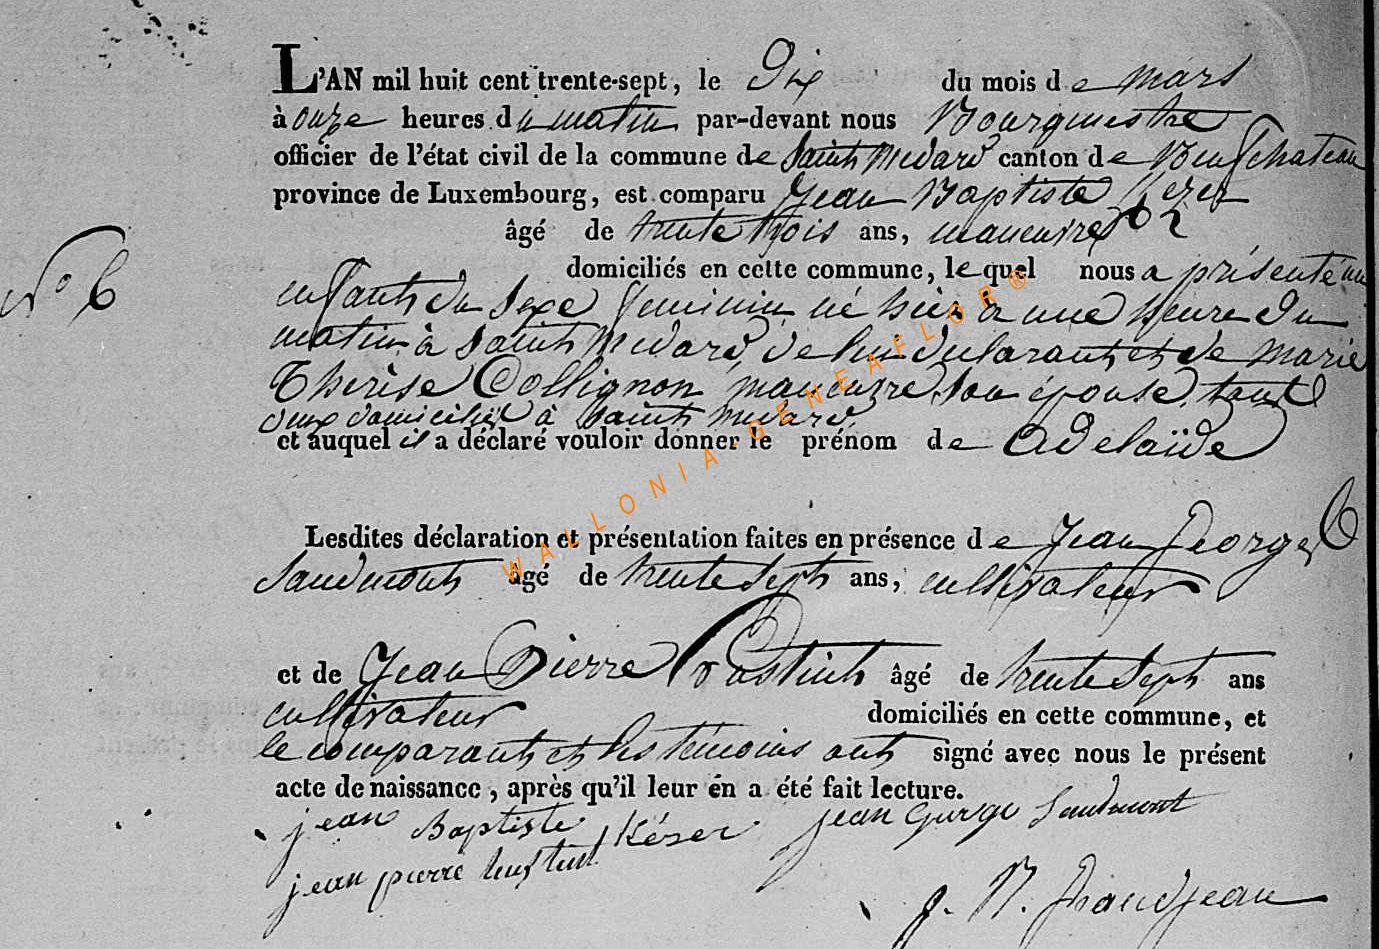 L'AN mil huit cent trente-sept, le Dix du mois de mars
à onze heures du matin par-devant nous Bourgmestre
officier de l'état civil de la commune de Saint Medard canton de Neufchateau
province de Luxembourg, est comparu Jean Baptiste Kezer
âgé de trente trois ans, manœuvre
domiciliés en cette commune, lequel nous a présenté un
N° 6
enfant du sexe feminin né hier à une heure du
matin à Saint Medard, de lui declarant et de marie
Therèse Collignon, manœuvre, son épouse, tout
deux domiciliés à Saint Medard
et auquel il a déclaré vouloir donner le prénom de Adelaïde
Lesdites déclaration et présentation faites en présence de Jean George
Saudmont âgé de trente sept ans, cultivateur
et de Jean Pierre âgé de trente sept ans
cultivateur domiciliés en cette commune, et
le comparant et les témoins ont signé avec nous le présent
acte de naissance, après qu'il leur en a été fait lecture.
jean Baptiste Késer jean George Saudmont
jean pierre
WALLONIA-GENEAFLOR®